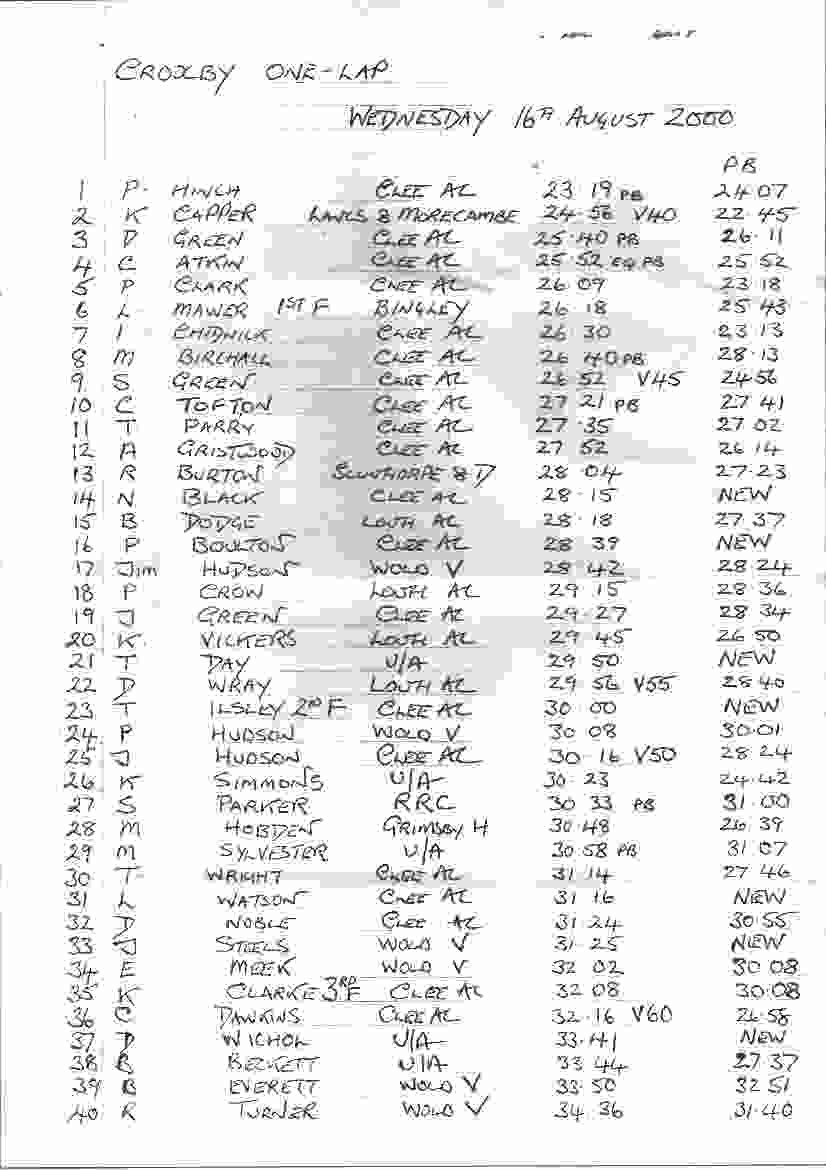 CROXBY ONE-LAP
WEDNESDAY 16TH AUGUST 2000
PB
1 P. HINCH CLEE AC 23 19 PB 24 07
2 K CAPPER LANCS & MORECAMBE 24.56 V40 22.45
3 D GREEN CLEE AC 25.40 PB 26.11
4 C ATKIN CLEE AC 25.52 EQ PB 25 52
5 P CLARK CLEE AC 26 09 23 18
6 L MAWER 1ST F BINGLEY 26 18 25 43
7 I CHIDWICK CLEE AC 26 30 23 13
8 M BIRCHALL CLEE AC 26 40 PB 28.13
9 S GREEN CLEE AC 26 52 V45 24 56
10 C TOFTON CLEE AC 27 21 PB 27 41
11 T PARRY CLEE AC 27.35 27 02
12 A GRISTWOOD CLEE AC 27 52 26 14
13 R BURTON SCUNTHORPE & D 28 04 27.23
14 N BLACK CLEE AC 28.15 NEW
15 B DODGE LOUTH AC 28.18 27 37
16 P BOULTON CLEE AC 28 39 NEW
17 Jim HUDSON WOLD V 28 42 28 24
18 P CROW LOUTH AC 29 15 28.36
19 J GREEN CLEE AC 29.27 28 34
20 K. VICKERS LOUTH AC 29 45 26 50
21 T DAY U/A 29 50 NEW
22 D WRAY LOUTH AC 29 56 V55 28 40
23 T ILSLEY 2ND F CLEE AC 30 00 NEW
24 P HUDSON WOLD V 30 08 30.01
25 J HUDSON CLEE AC 30.16 V50 28 24
26 K SIMMONS U/A 30.23 24.42
27 S PARKER RRC 30 33 PB 31.00
28 M HOBDEN GRIMSBY H 30.48 26 39
29 M SYLVESTER U/A 30.58 PB 31 07
30 T WRIGHT CLEE AC 31 14 27 46
31 L WATSON CLEE AC 31 16 NEW
32 D NOBLE CLEE AC 31.24 30.55
33 J STEELS WOLD V 31.25 NEW
34 E MEEK WOLD V 32 02 30 08
35 K CLARKE 3RD F CLEE AC 32 08 30.08
36 C DAWKINS CLEE AC 32.16 V60 26.58
37 D WICHOL U/A 33.41 NEW
38 B BECKETT U/A 33 44 27.37
39 B EVERETT WOLD V 33.50 32 51
40 R TURNER WOLD V 34 36 31.40